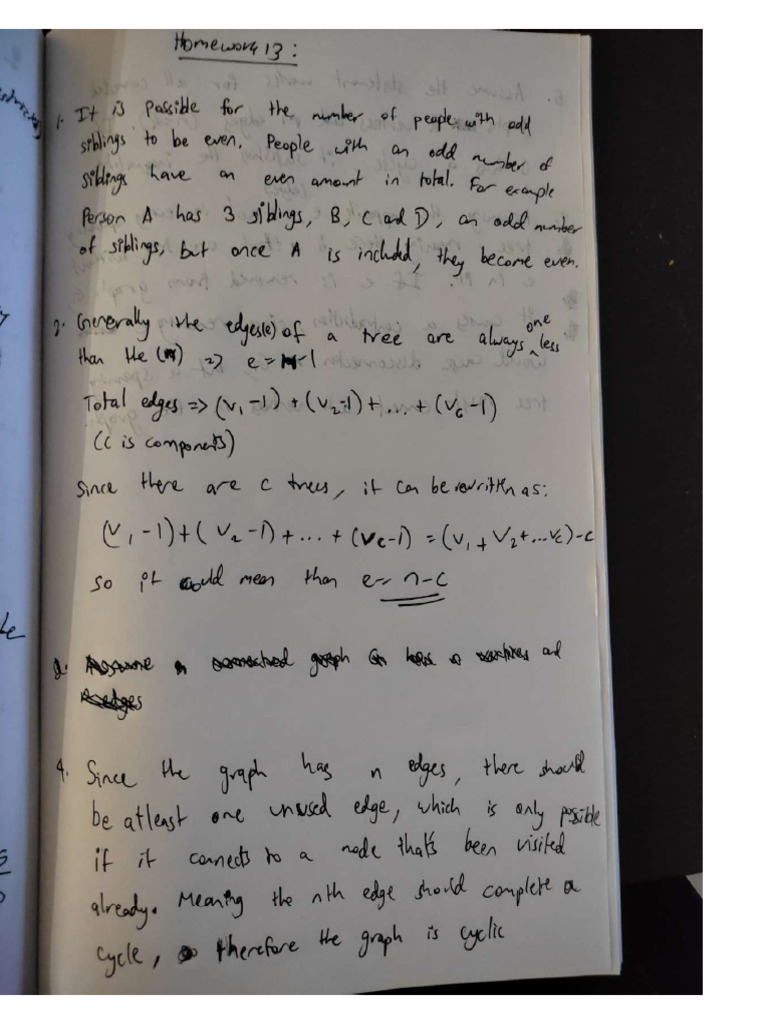 Homework 13:
1. It is possible for the number of people with odd
siblings to be even. People with an odd number of
siblings have an even amount in total. For example
Person A has 3 siblings, B, C and D, an odd number
of siblings, but once A is included, they become even.
2. Generally the edges(e) of a tree are always one less
than the (n) => e = n-1
Total edges => (v₁ -1) + (v₂ -1) + ... + (vc -1)
(c is components)
Since there are c trees, it can be rewritten as:
(v₁ -1) + (v₂ -1) + ... + (vc -1) = (v₁ + v₂ + ... vc) - c
so it would mean than e = n-c
Assume a connected graph G has n vertices and
edges
4. Since the graph has n edges, there should
be atleast one unused edge, which is only possible
if it connects to a node that's been visited
already. Meaning the nth edge should complete a
cycle, therefore the graph is cyclic